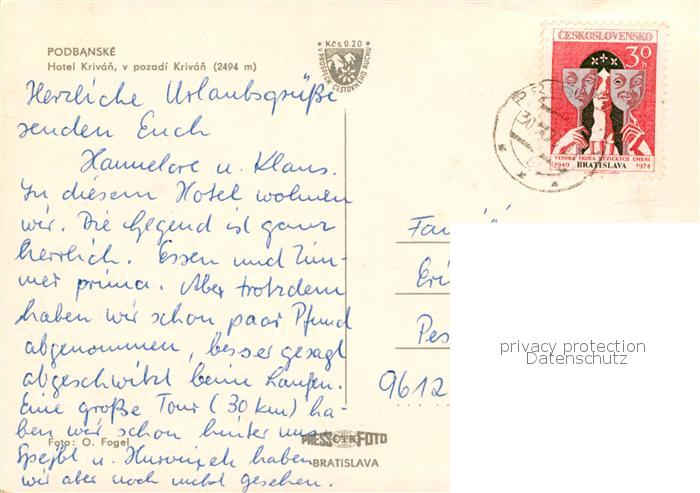 PODBANSKÉ
Hotel Kriváň, v pozadí Kriváň (2494 m)
Kčs 0.20
V PROSPECH CESTOVNÉHO RUCHU
ČESKOSLOVENSKO
30h
VYSOKÁ ŠKOLA MÚZICKÝCH UMENÍ
1949 BRATISLAVA 1974
Herzliche Urlaubsgrüße
senden Euch
Hannelore u. Klaus.
In diesem Hotel wohnen
wir. Die Gegend ist ganz
herrlich. Essen und Zim-
mer prima. Aber trotzdem
haben wir schon paar Pfund
abgenommen, besser gesagt
abgeschwitzt beim Laufen.
Eine große Tour (30 km) ha-
ben wir schon hinter uns.
Spejbl u. Hurvinek haben
wir aber noch nicht gesehen.
Foto: O. Fogel
PRESSČTKFOTO
BRATISLAVA
Fam
Eri
Pes
9612
privacy protection
Datenschutz